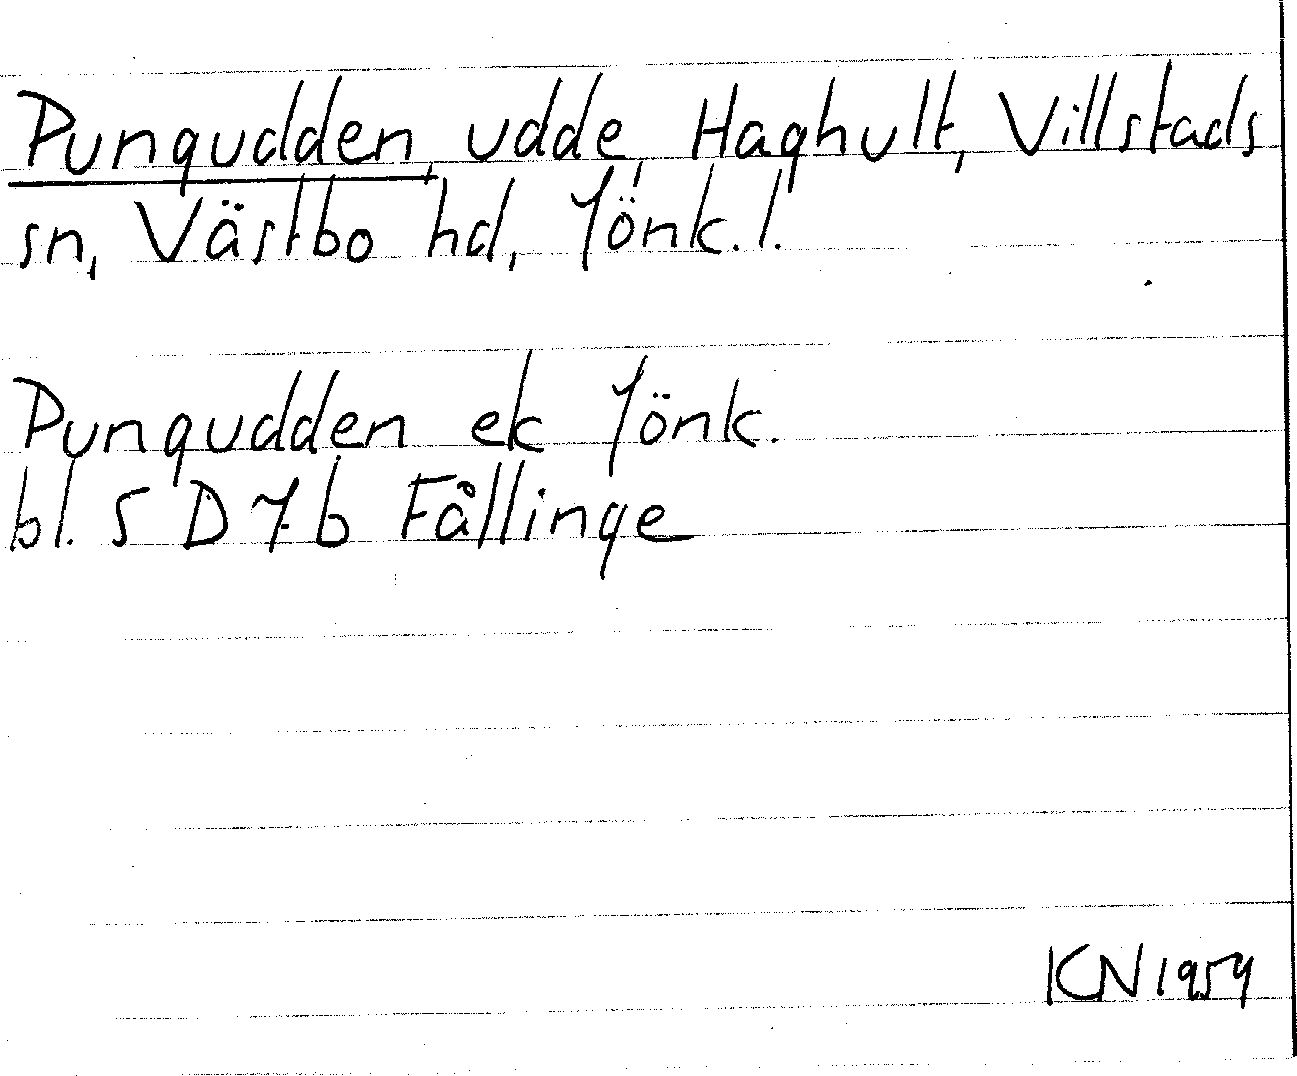 Pungudden, udde, Haghult, Villstads
sn, Västbo hd, Jönk. l.
Pungudden ek Jönk.
bl. 5 D 7 b Fållinge
KN 1959